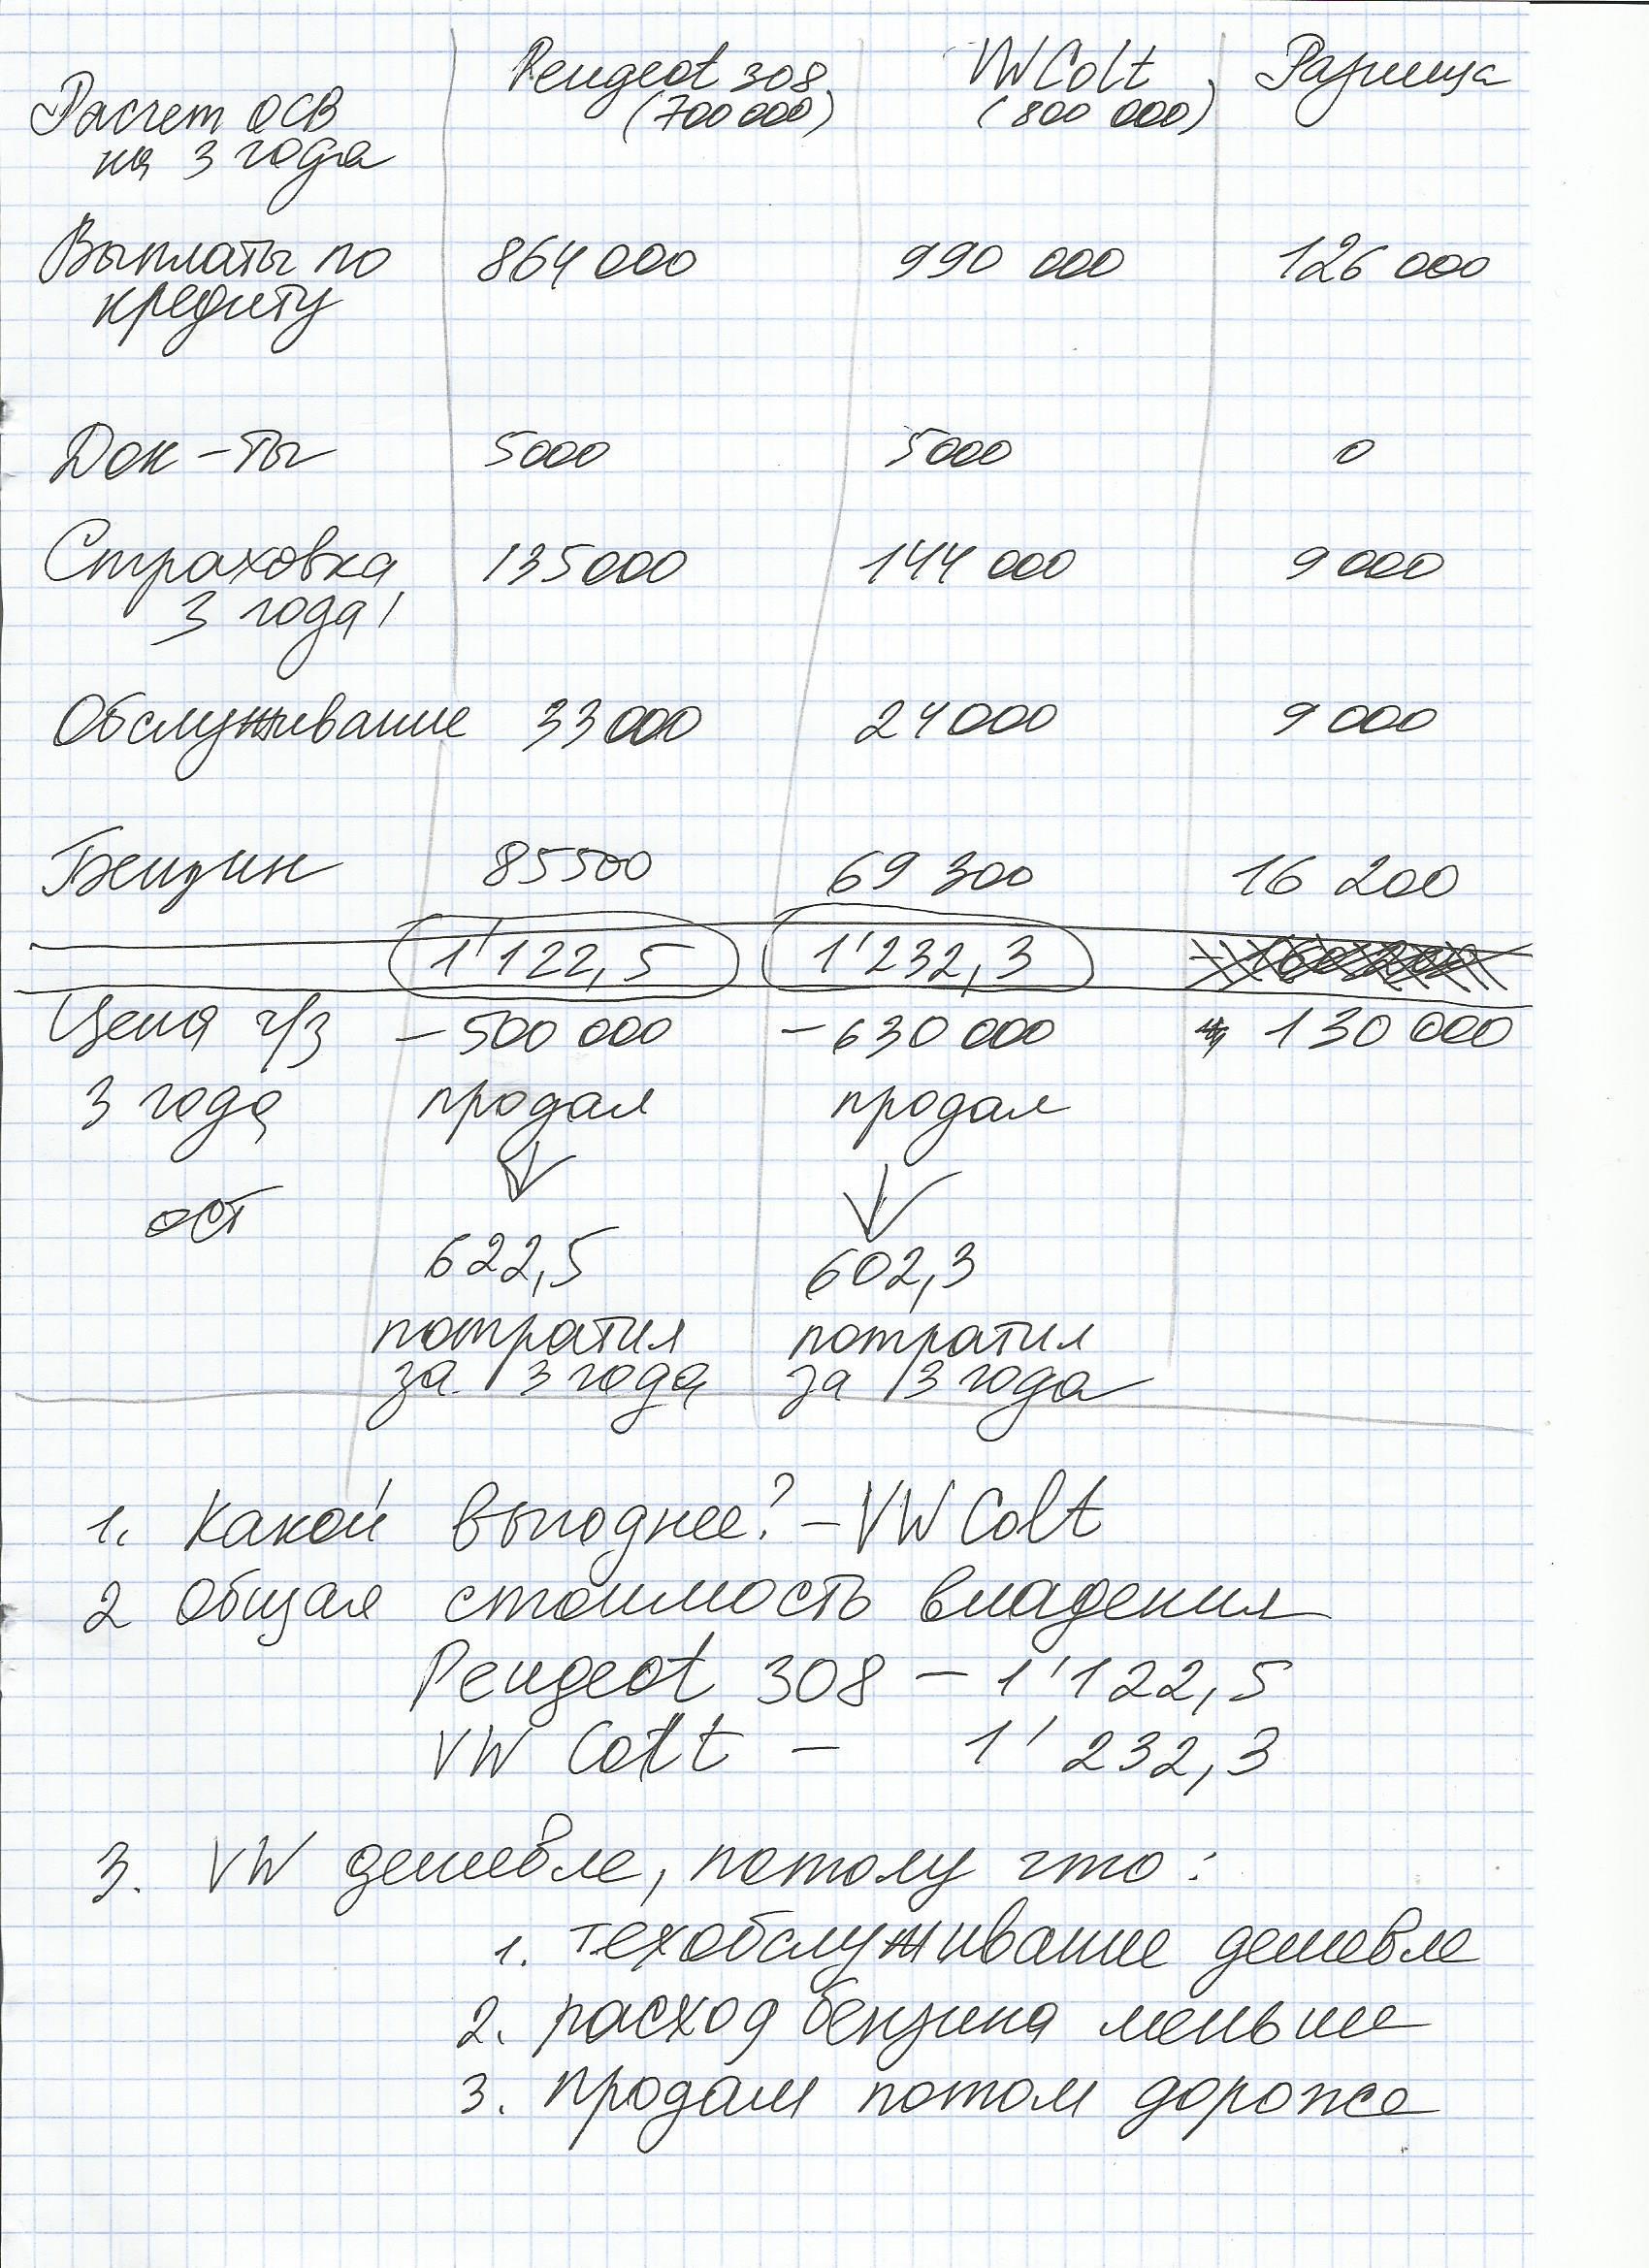 Расчет ОСВ на 3 года Peugeot 308 (700 000) VW Colt (800 000) Разница
Выплаты по кредиту 864 000 990 000 126 000
Док-ты 5000 5000 0
Страховка 3 года! 135000 144 000 9 000
Обслуживание 33 000 24 000 9 000
Бензин 85500 69 300 16 200
1'122,5 1'232,3
Цена ч/з 3 года -500 000 -630 000 130 000
продал продал
ост
622,5 602,3
потратил потратил
за 3 года за 3 года
1. Какой выгоднее? - VW Colt
2 Общая стоимость владения
Peugeot 308 - 1'122,5
VW Colt - 1'232,3
3. VW дешевле, потому что:
1. техобслуживание дешевле
2. расход бензина меньше
3. продам потом дороже